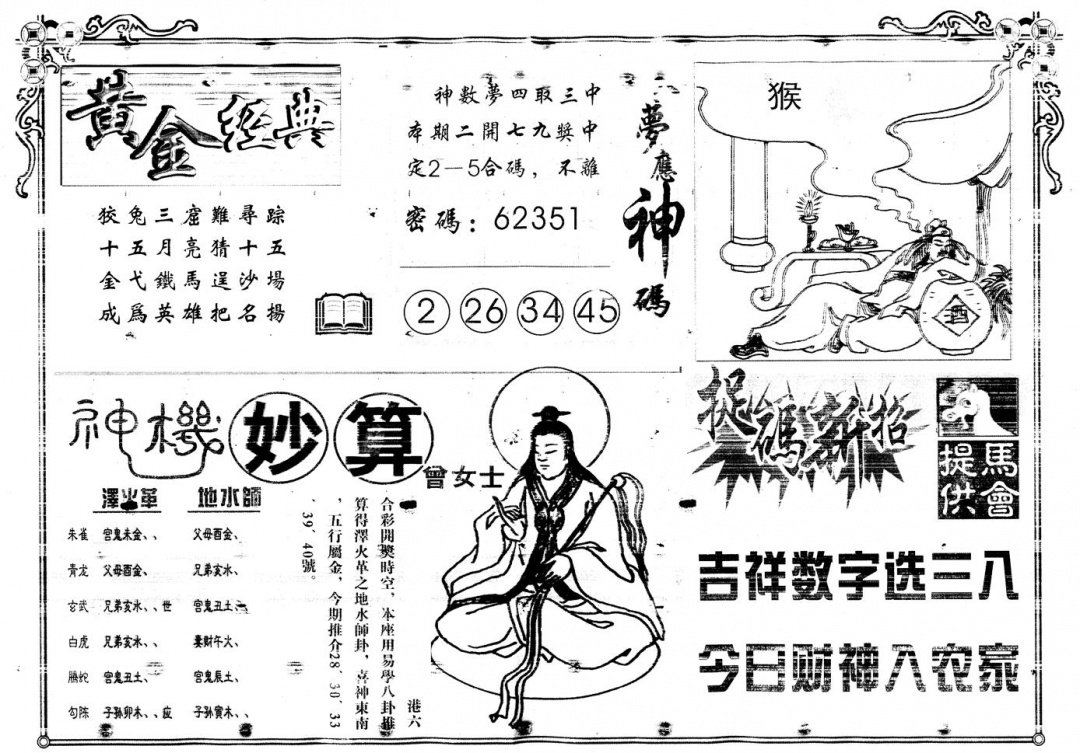 黃金經典
狡兔三窟難尋踪
十五月亮猜十五
金戈鐵馬逞沙場
成爲英雄把名揚
神數夢四取三中
本期二開七九獎中
定2—5合碼，不離
密碼：62351
2 26 34 45
夢應神碼
猴
酒
神機妙算
曾女士
澤火革 地水師
朱雀 宫鬼未金、、 父母酉金、
青龙 父母酉金、 兄弟亥水、
玄武 兄弟亥水、、世 宫鬼丑土、
白虎 兄弟亥水、、 妻财午火、
腾蛇 宫鬼丑土、 宫鬼辰土、
勾陈 子孙卯木、、应 子孙寅木、、
港六
合彩開獎時空，本座用易學八卦推
算得澤火革之地水師卦，喜神東南
，五行屬金，今期推介28、30、33
、39、40號。
捉碼新招
馬會提供
吉祥数字选三八
今日财神入农家